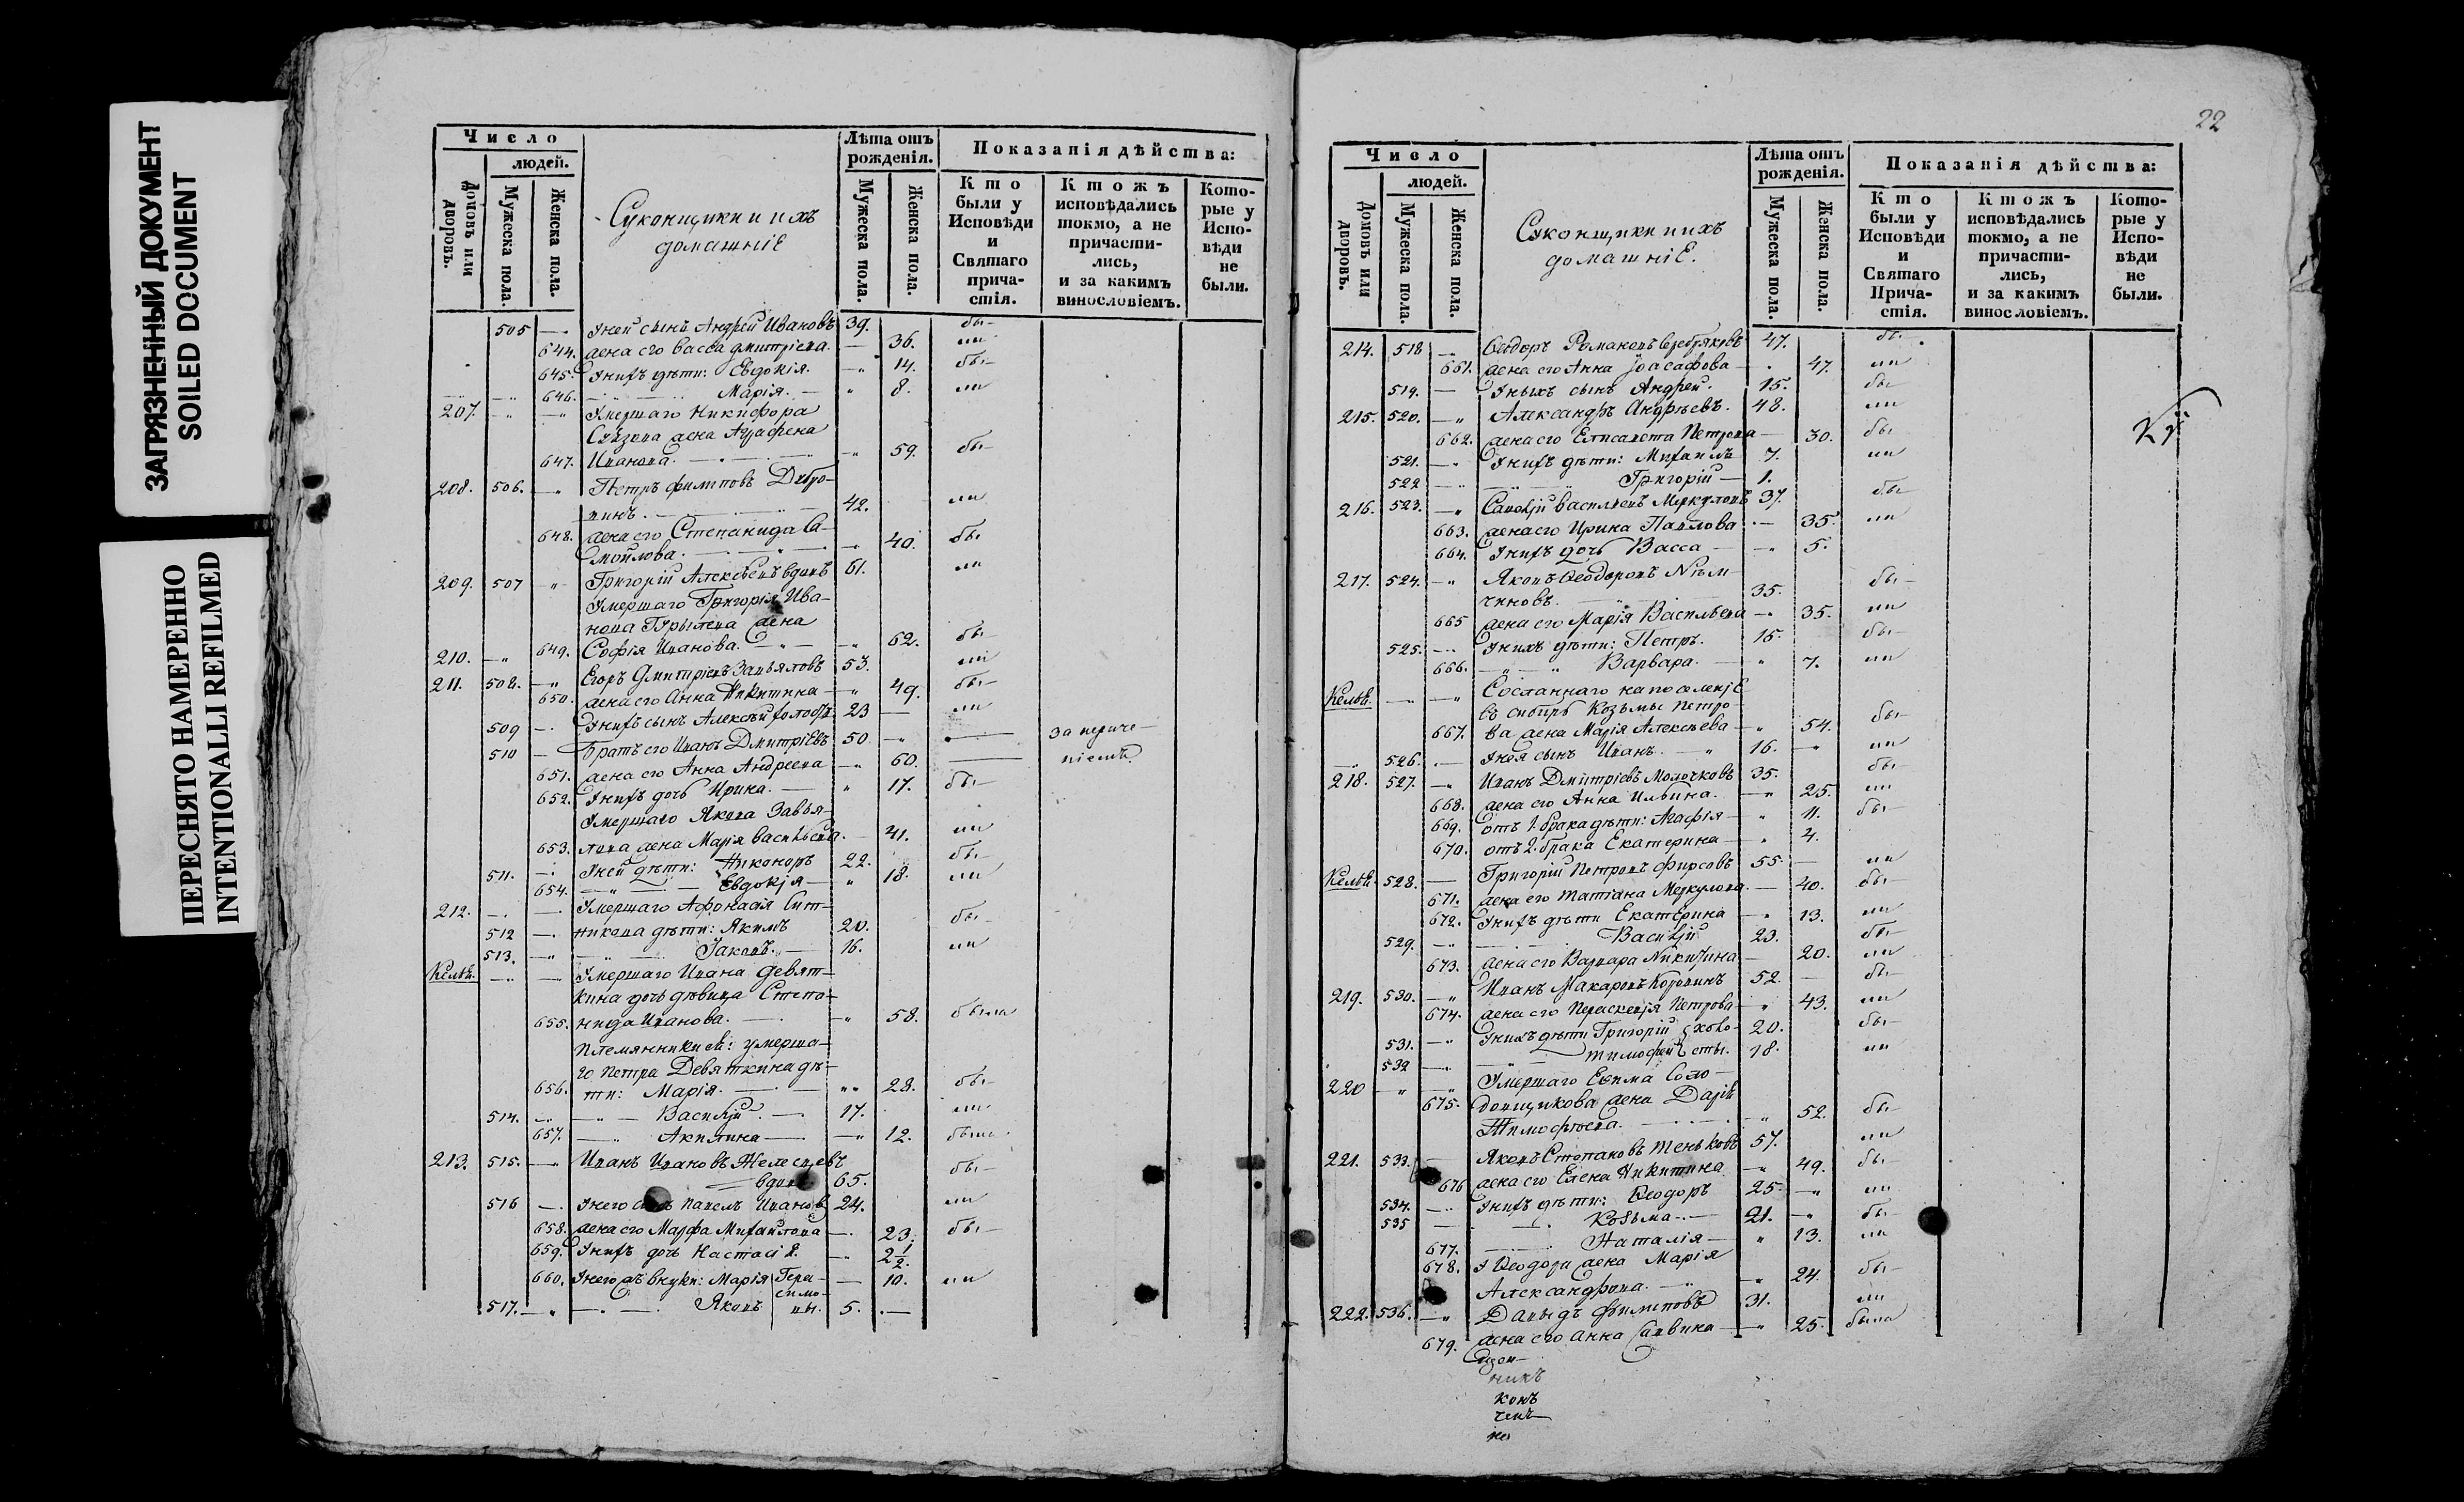 ЗАГРЯЗНЕННЫЙ ДОКУМЕНТ
SOILED DOCUMENT
ПЕРЕСНЯТО НАМЕРЕННО
INTENTIONALLI REFILMED
Число
людей.
Домовъ или дворовъ.
Мужеска пола.
Женска пола.
Суконщики и ихъ
домашніе
Лѣта отъ рожденія.
Мужеска пола.
Женска пола.
Показанія дѣйства:
Кто были у Исповѣди и Святаго прича-стія.
Ктожъ исповѣдались токмо, а не причасти-лись, и за какимъ винословіемъ.
Кото-рые у Испо-вѣди не были.
505 — У ней сынъ Андрей Ивановъ 39. бы-
644. жена его Васса Дмитріева — 36. ли
645. У нихъ дѣти: Евдокія. — 14. бы-
646. Марія. — 8. ли
207. Умершаго Никифора
жена Аграфена
647. Иванова. 59. бы-
208. 506. Петръ Филиповъ Дубро-
винъ. 42. ли
648. жена его Степанида Са-
мойлова. 40. бы-
209. 507 Григорій Алексѣевъ вдовъ 61. ли
Умершаго Григорія Ива-
нова жена
210. 649. Софія Иванова. 62. бы-
211. 508. Егоръ Дмитріевъ Завьяловъ 53. ли
650. жена его Анна Никитина 49. бы-
509 У нихъ сынъ Алексѣй холостъ 23 ли
510 Братъ его Иванъ Дмитріевъ 50. за
651. жена его Анна Андреева 60.
652. У нихъ дочь Ирина. 17. бы-
Умершаго Якова Завья-
653. лова жена Марія Васильева. 41. ли
511. У ней дѣти: Никоноръ 22. бы-
654. Евдокія 18. ли
212. Умершаго Афонасія Сит-
512 никова дѣти: Якимъ 20. бы-
513. Іаковъ. 16. ли
Келья. Умершаго Ивана Девят-
кина дочь дѣвица Степа-
655. нида Иванова. 58. была
Племянники ея: умерша-
го Петра Девяткина дѣ-
656. ти: Марія. 28. бы-
514. Василій 17. ли
657. Акилина 12. была
213. 515. Иванъ Ивановъ
вдовъ 65. бы-
516 У него сынъ Павелъ Ивановъ 24. ли
658. жена его Марфа Михайлова 23. бы-
659. У нихъ дочь Настасія. 2 1/2.
660. У него жъ внуки: Марія Гера- 10. ли
симо-
517. Яковъ вы. 5.
22
Число
людей.
Домовъ или дворовъ.
Мужеска пола.
Женска пола.
Суконщики и ихъ
домашніе.
Лѣта отъ рожденія.
Мужеска пола.
Женска пола.
Показанія дѣйства:
Кто были у Исповѣди и Святаго Прича-стія.
Ктожъ исповѣдались токмо, а не причасти-лись, и за какимъ винословіемъ.
Кото-рые у Испо-вѣди не были.
214. 518 Ѳеодоръ Романовъ Серебряковъ 47. бы-
661. жена его Анна Іоасафова 47. ли
519. У нихъ сынъ Андрей. 15. бы
215. 520. Александръ Андрѣевъ. 48. ли
662. жена его Елисавета Петрова 30. бы
521. У нихъ дѣти: Михаилъ 7. ли
522 Григорій 1.
216. 523. Савелій Васильевъ Меркуловъ 37. бы-
663. жена его Ирина Павлова 35. ли
664. У нихъ дочь Васса 5.
217. 524. Яковъ Ѳеодоровъ Нѣм-
чиновъ. 35. бы-
665 жена его Марія Васильева 35. ли
525. У нихъ дѣти: Петръ. 15. бы-
666. Варвара. 7. ли
Келья. Сосланнаго на поселеніе
въ сибирь Козьмы Петро-
667. ва жена Марія Алексѣева 54. бы-
526. У нея сынъ Иванъ. 16. ли
218. 527. Иванъ Дмитріевъ Молочковъ 35. бы-
668. жена его Анна Ильина. 25. ли
669. отъ 1. брака дѣти: Агафія 11. бы-
670. отъ 2. брака Екатерина 4.
Келья 528. Григорій Петровъ Фирсовъ 55. ли
671. жена его Татіана Меркулова. 40. бы-
672. У нихъ дѣти Екатерина 13. ли
529. Василій 23. бы
673. жена его Варвара Никитина 20. ли
219. 530. Иванъ Макаровъ 52. бы-
674. жена его Параскевія Петрова 43. ли
531. У нихъ дѣти Григорій холо- 20. бы-
532 Тимофей сты. 18. ли
220 Умершаго Евима Соло-
675. довщикова жена Дарія
Тимофеева. 52. бы-
221. 533. Яковъ Степановъ Теньковъ 57. ли
676 жена его Елена Никитина 49. бы-
534. У нихъ дѣти: Ѳеодоръ 25. ли
535 Козьма 21. бы-
677. Наталія 13. ли
678. У Ѳеодора жена Марія
Александрова. 24. бы-
222. 536. Давыдъ Филиповъ 31. ли
679. жена его Анна Саввина 25. была